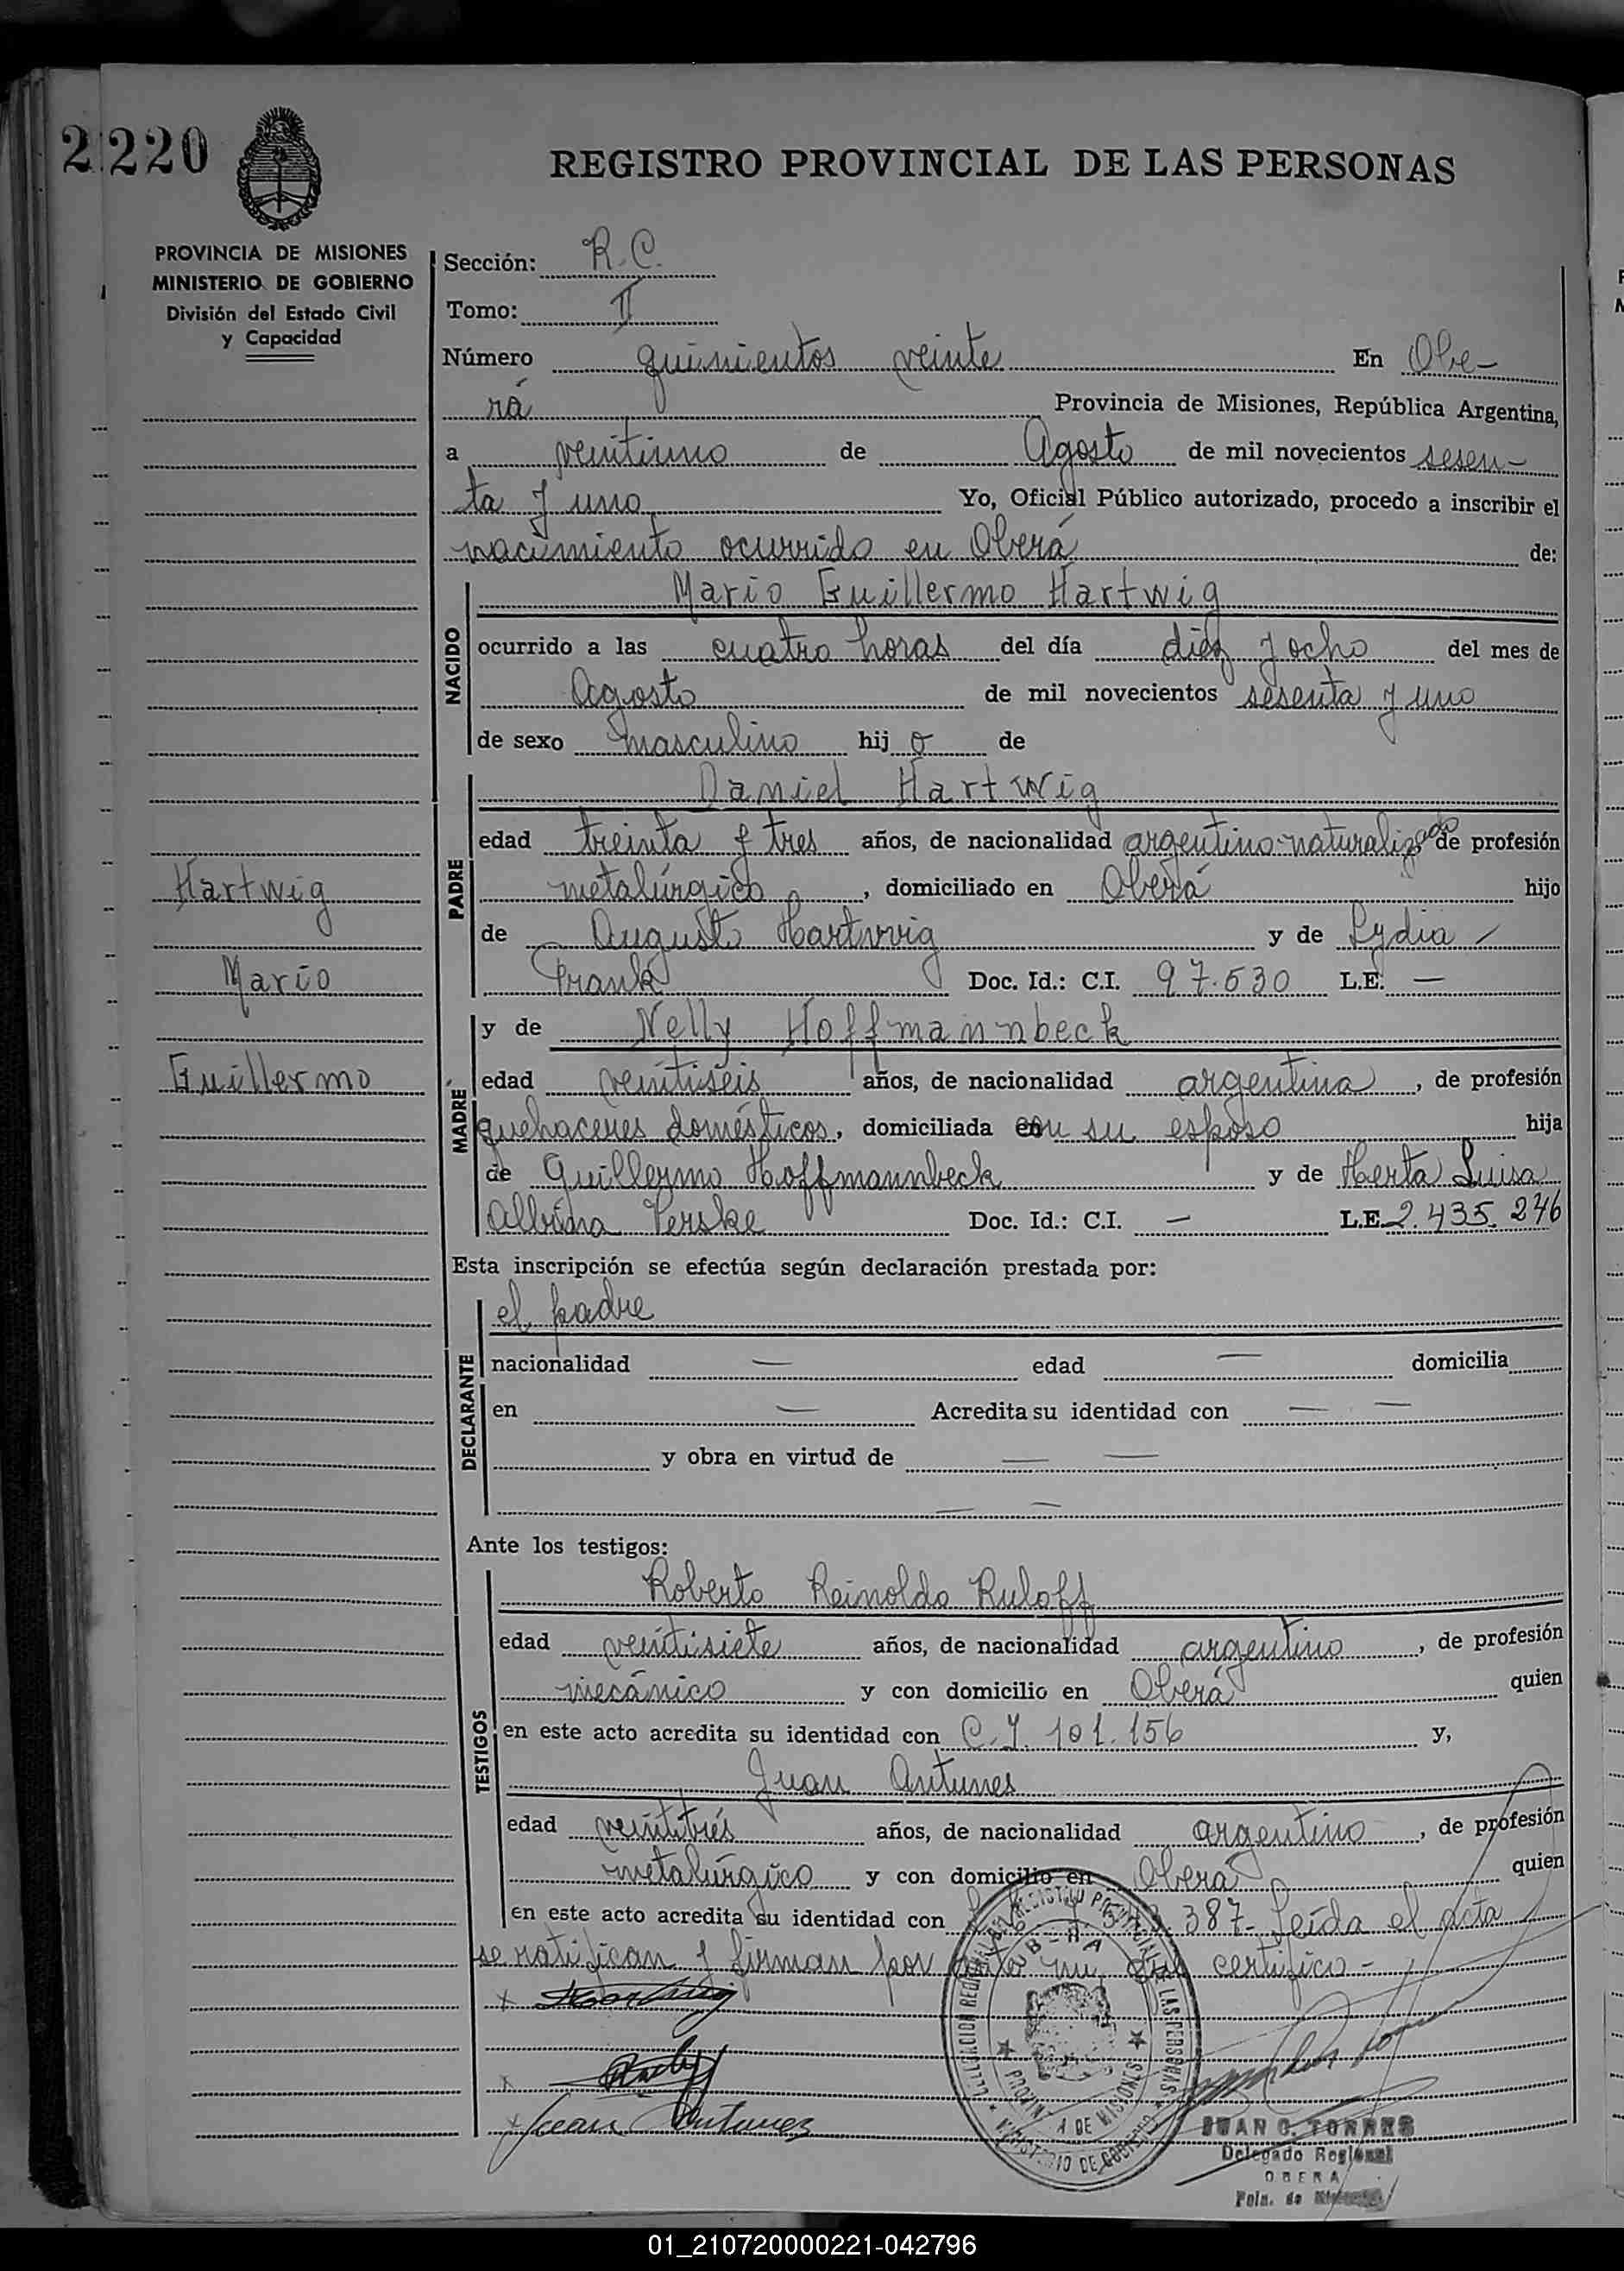 2 220
REGISTRO PROVINCIAL DE LAS PERSONAS
PROVINCIA DE MISIONES
MINISTERIO DE GOBIERNO
División del Estado Civil
y Capacidad
Hartwig
Mario
Guillermo
Sección: R.C.
Tomo: II
Número quinientos veinte En Obe-
rá Provincia de Misiones, República Argentina,
a veintiuno de Agosto de mil novecientos sesen-
ta y uno Yo, Oficial Público autorizado, procedo a inscribir el
nacimiento ocurrido en Oberá de:
NACIDO
Mario Guillermo Hartwig
ocurrido a las cuatro horas del día diez y ocho del mes de
Agosto de mil novecientos sesenta y uno
de sexo masculino hij o de
PADRE
Daniel Hartwig
edad treinta y tres años, de nacionalidad argentino naturalizado de profesión
metalúrgico, domiciliado en Oberá hijo
de Augusto Hartwig y de Lydia
Frank Doc. Id.: C.I. 97.530 L.E. —
MADRE
y de Nelly Hoffmannbeck
edad veintiseis años, de nacionalidad argentina, de profesión
quehaceres domésticos, domiciliada con su esposo hija
de Guillermo Hoffmannbeck y de Herta Luisa
Albina Perske Doc. Id.: C.I. — L.E. 2.435.246
Esta inscripción se efectúa según declaración prestada por:
DECLARANTE
el padre
nacionalidad — edad — domicilia
en — Acredita su identidad con — —
y obra en virtud de — —
— —
Ante los testigos:
TESTIGOS
Roberto Reinoldo Ruloff
edad veintisiete años, de nacionalidad argentino, de profesión
mecánico y con domicilio en Oberá quien
en este acto acredita su identidad con C.I. 101.156 y,
Juan Antunes
edad veintitrés años, de nacionalidad argentino, de profesión
metalúrgico y con domicilio en Oberá quien
en este acto acredita su identidad con 387- Leída el acta
se ratifican y firman por ante mi, que certifico -
x Hartwig
x
x Juan Antunes
DELEGACION REGIONAL DEL REGISTRO PROVINCIAL DE LAS PERSONAS
OBERA
PROVINCIA DE MISIONES
MINISTERIO DE GOBIERNO
JUAN C. TORRES
Delegado Regional
OBERA
Pcia. de Misiones
01_210720000221-042796